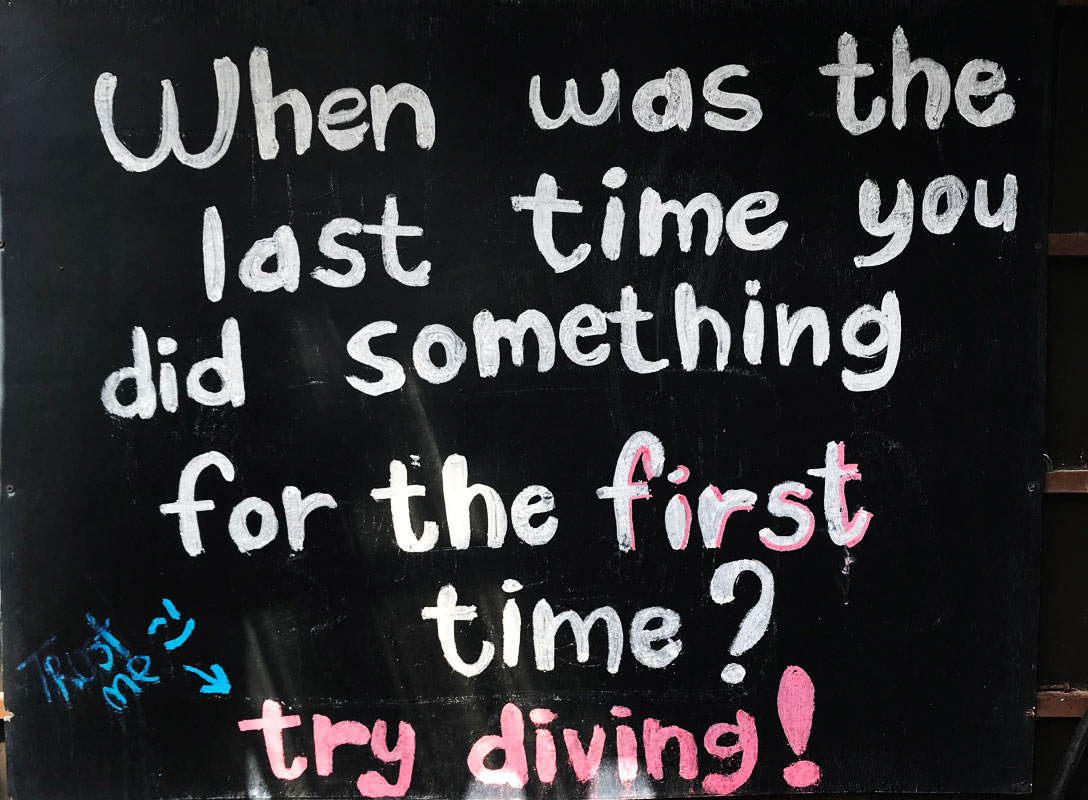 When was the
last time you
did something
for the first
time?
Trust
me
try diving!